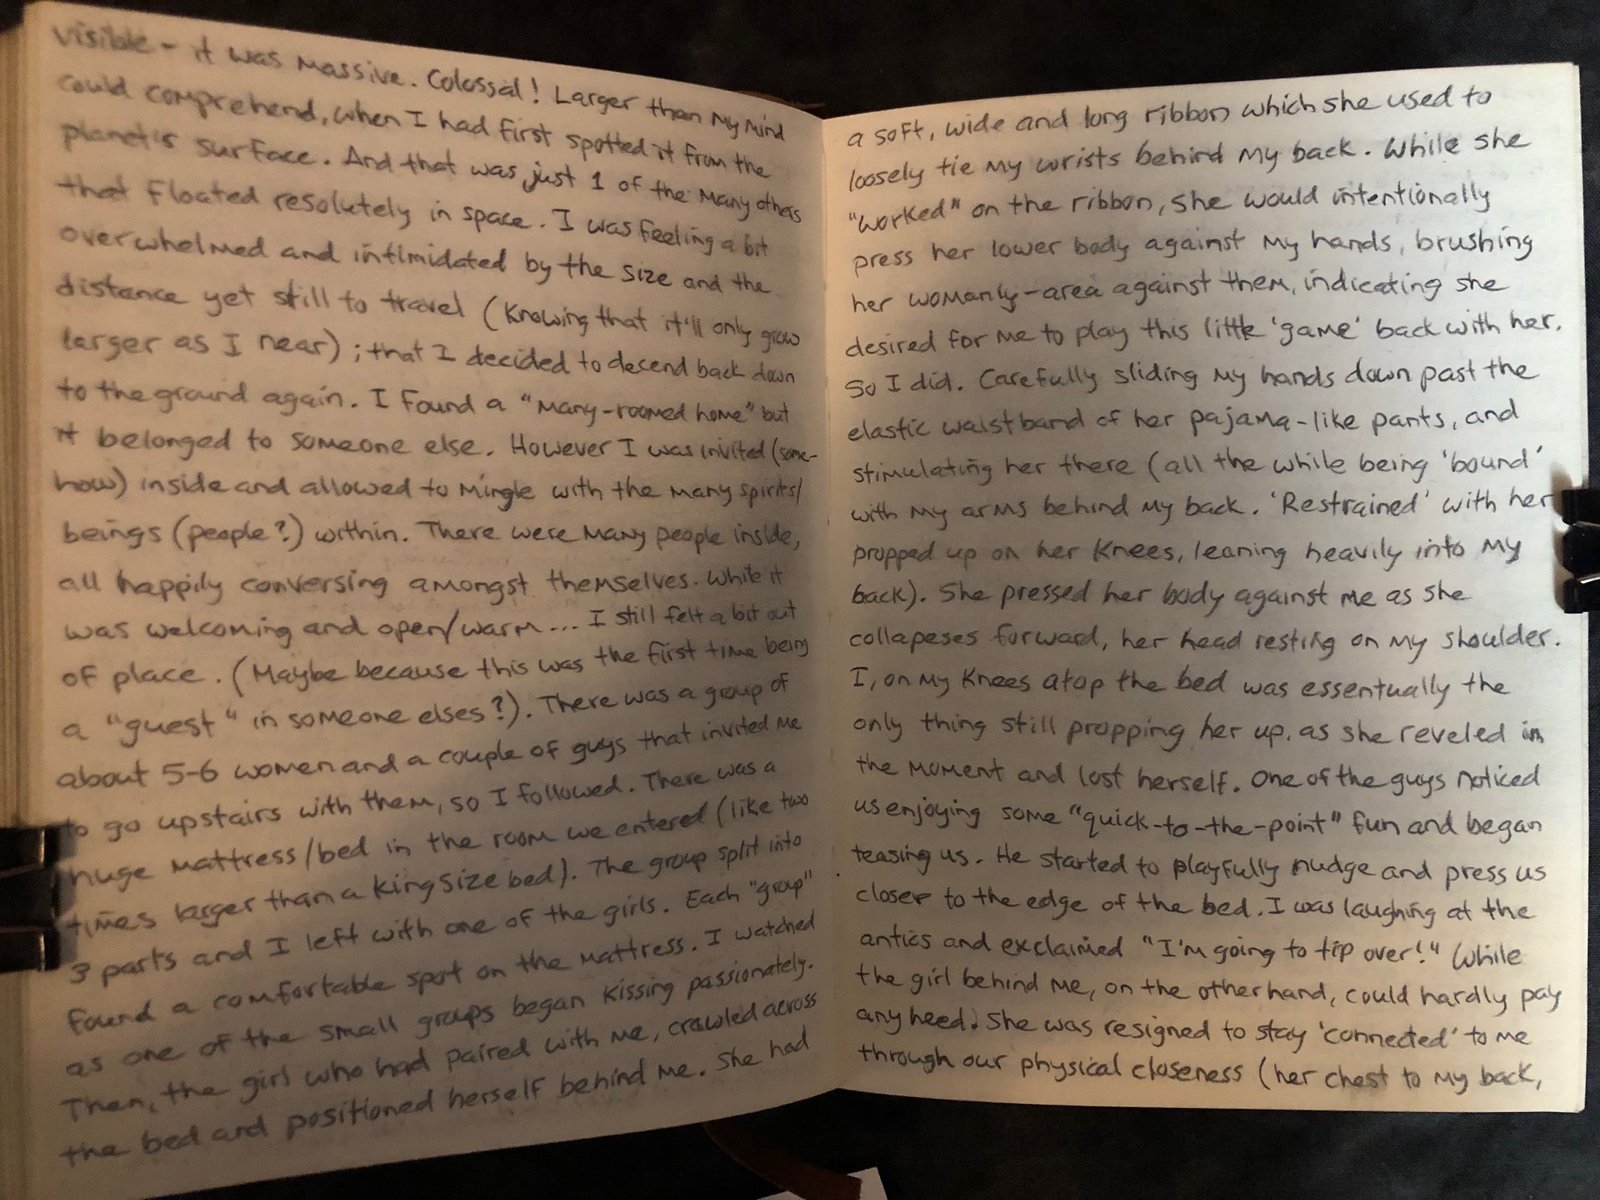 visible - it was massive. Colossal! Larger than my mind
could comprehend, when I had first spotted it from the
planet's surface. And that was just 1 of the many others
that floated resolutely in space. I was feeling a bit
overwhelmed and intimidated by the size and the
distance yet still to travel (knowing that it'll only grow
larger as I near); that I decided to decend back down
to the ground again. I found a "many-roomed home" but
it belonged to someone else. However I was invited (some-
how) inside and allowed to mingle with the many spirits/
beings (people?) within. There were many people inside,
all happily conversing amongst themselves. While it
was welcoming and open/warm... I still felt a bit out
of place. (Maybe because this was the first time being
a "guest" in someone elses?). There was a group of
about 5-6 women and a couple of guys that invited me
to go upstairs with them, so I followed. There was a
huge mattress/bed in the room we entered (like two
times larger than a king size bed). The group split into
3 parts and I left with one of the girls. Each "group"
found a comfortable spot on the mattress. I watched
as one of the small groups began kissing passionately.
Then, the girl who had paired with me, crawled across
the bed and positioned herself behind me. She had
a soft, wide and long ribbon which she used to
loosely tie my wrists behind my back. While she
"worked" on the ribbon, she would intentionally
press her lower body against my hands, brushing
her womanly-area against them, indicating she
desired for me to play this little 'game' back with her.
So I did. Carefully sliding my hands down past the
elastic waistband of her pajama-like pants, and
stimulating her there (all the while being 'bound'
with my arms behind my back. 'Restrained' with her
propped up on her knees, leaning heavily into my
back). She pressed her body against me as she
collapeses forward, her head resting on my shoulder.
I, on my knees atop the bed was essentually the
only thing still propping her up, as she reveled in
the moment and lost herself. One of the guys noticed
us enjoying some "quick-to-the-point" fun and began
teasing us. He started to playfully nudge and press us
closer to the edge of the bed. I was laughing at the
antics and exclaimed "I'm going to tip over!" While
the girl behind me, on the other hand, could hardly pay
any heed. She was resigned to stay 'connected' to me
through our physical closeness (her chest to my back,